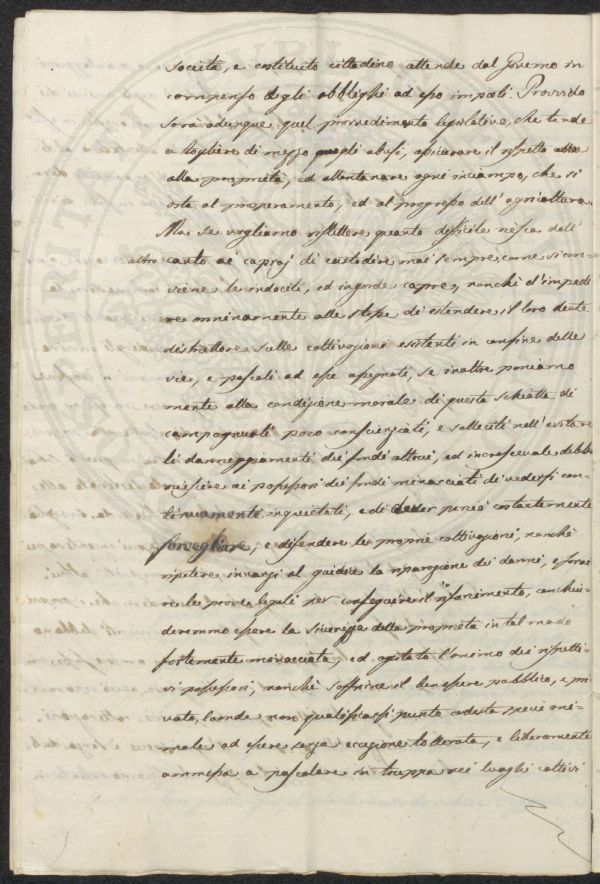 società, e costituito cittadino attende dal Governo in
compenso degli obblighi ad esso imposti. Provvido
sarà adunque quel provvedimento legislativo, che tende
a togliere di mezzo quegli abusi, assicurare il rispetto
alla proprietà, ed allontanare ogni inciampo, che si
osta al prosperamento, ed al progresso dell'agricoltura.
Ma se vogliamo riflettere quanto difficile riesca dall'
altro canto ai capraj di custodire mai sempre, come si con-
viene le indocili, ed ingorde capre, nonchè d'impedi
re onninamente alle stesse di estendere il loro dente
distruttore sulle coltivazioni esistenti in confine delle
vie, e pascoli ad esse assegnati, se inoltre poniamo
mente alla condizione morale di questa schiatta di
campagnuoli poco conscienziati, e solleciti nell'evitare
li danneggiamenti dei fondi altrui, ed increscevole debba
riescire ai possessori dei fondi minacciati di vedersi con-
tinuamente inquietati, e di dover perciò costantemente
sorvegliare, e difendere le proprie coltivazioni, nonchè
ripetere innanzi al giudice la riparazione dei danni, e forni
re le prove legali per conseguire il risarcimento, conchiu-
deremmo essere la sicurezza della proprietà in tal modo
fortemente minacciata, ed agitato l'animo dei rispetti-
vi possessori, nonchè soffrire il benessere pubblico, e pri
vato, laonde non qualificarsi punto codesta specie ani-
male ad essere senza eccezione tollerata, e liberamente
ammessa a pascolare in truppa nei luoghi coltivi